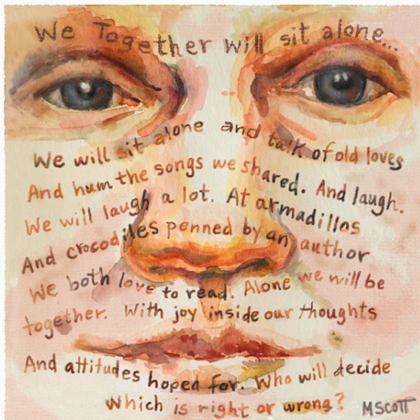 We Together will sit alone...
We will sit alone and talk of old loves
And hum the songs we shared. And laugh.
We will laugh a lot. At armadillos
And crocodiles penned by an author
We both love to read. Alone we will be
together. With joy inside our thoughts
And attitudes hoped for. Who will decide
Which is right or wrong?
MScott